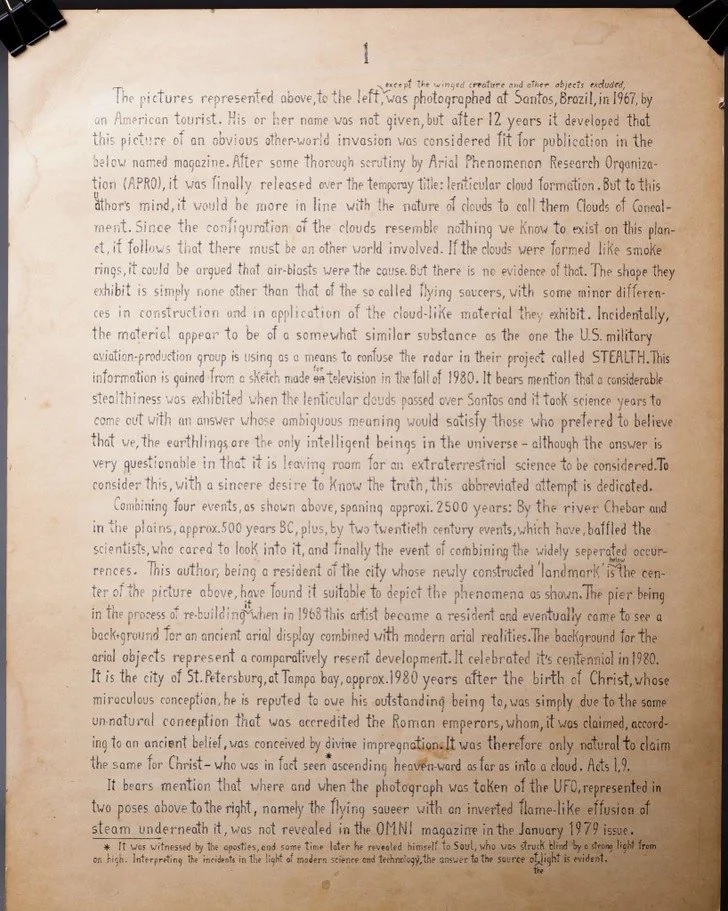 1
except the winged creature and other objects excluded,
The pictures represented above, to the left, was photographed at Santos, Brazil, in 1967, by
an American tourist. His or her name was not given, but after 12 years it developed that
this picture of an obvious other-world invasion was considered fit for publication in the
below named magazine. After some thorough scrutiny by Arial Phenomenon Research Organiza-
tion (APRO), it was finally released over the temporay title: lenticular cloud formation. But to this
u
athor's mind, it would be more in line with the nature of clouds to call them Clouds of Conceal-
ment. Since the configuration of the clouds resemble nothing we Know to exist on this plan-
et, it follows that there must be an other world involved. If the clouds were formed like smoke
rings, it could be argued that air-blasts were the cause. But there is no evidence of that. The shape they
exhibit is simply none other than that of the so called flying saucers, with some minor differen-
ces in construction and in application of the cloud-like material they exhibit. Incidentally,
the material appear to be of a somewhat similar substance as the one the U.S. military
aviation-production group is using as a means to confuse the radar in their project called STEALTH. This
for
information is gained from a sketch made on television in the fall of 1980. It bears mention that a considerable
stealthiness was exhibited when the lenticular clouds passed over Santos and it took science years to
come out with an answer whose ambiguous meaning would satisfy those who prefered to believe
that we, the earthlings, are the only intelligent beings in the universe - although the answer is
very questionable in that it is leaving room for an extraterrestrial science to be considered. To
consider this, with a sincere desire to Know the truth, this abbreviated attempt is dedicated.
Combining four events, as shown above, spaning approxi. 2500 years: By the river Chebar and
in the plains, approx. 500 years BC, plus, by two twentieth century events, which have, baffled the
scientists, who cared to look into it, and finally the event of combining the widely seperated occur-
below
rences. This author, being a resident of the city whose newly constructed 'landmark' is the cen-
ter of the picture above, have found it suitable to depict the phenomena as shown. The pier being
it
in the process of re-building when in 1968 this artist became a resident and eventually came to see a
back-ground for an ancient arial display combined with modern arial realities. The background for the
arial objects represent a comparatively resent development. It celebrated it's centennial in 1980.
It is the city of St. Petersburg, at Tampa bay, approx. 1980 years after the birth of Christ, whose
miraculous conception, he is reputed to owe his outstanding being to, was simply due to the same
un-natural conception that was accredited the Roman emperors, whom, it was claimed, accord-
ing to an ancient belief, was conceived by divine impregnation. It was therefore only natural to claim
the same for Christ - who was in fact seen * ascending heaven-ward as far as into a cloud. Acts 1,9.
It bears mention that where and when the photograph was taken of the UFO, represented in
two poses above to the right, namely the flying saucer with an inverted flame-like effusion of
steam underneath it, was not revealed in the OMNI magazine in the January 1979 issue.
* It was witnessed by the apostles, and some time later he revealed himself to Saul, who was struck blind by a strong light from
on high. Interpreting the incidents in the light of modern science and technology, the answer to the source of light is evident.
the